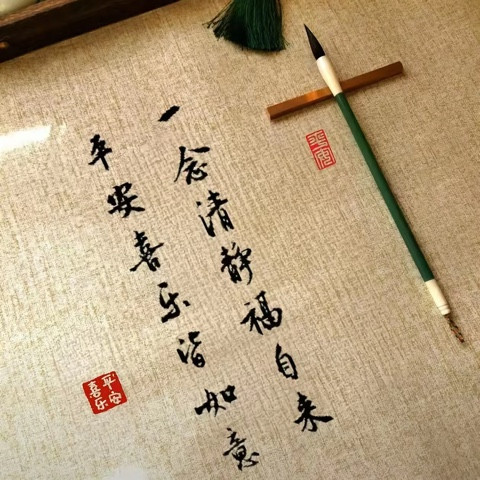 一念清静福自来
平安喜乐皆如意
平安
平安喜乐